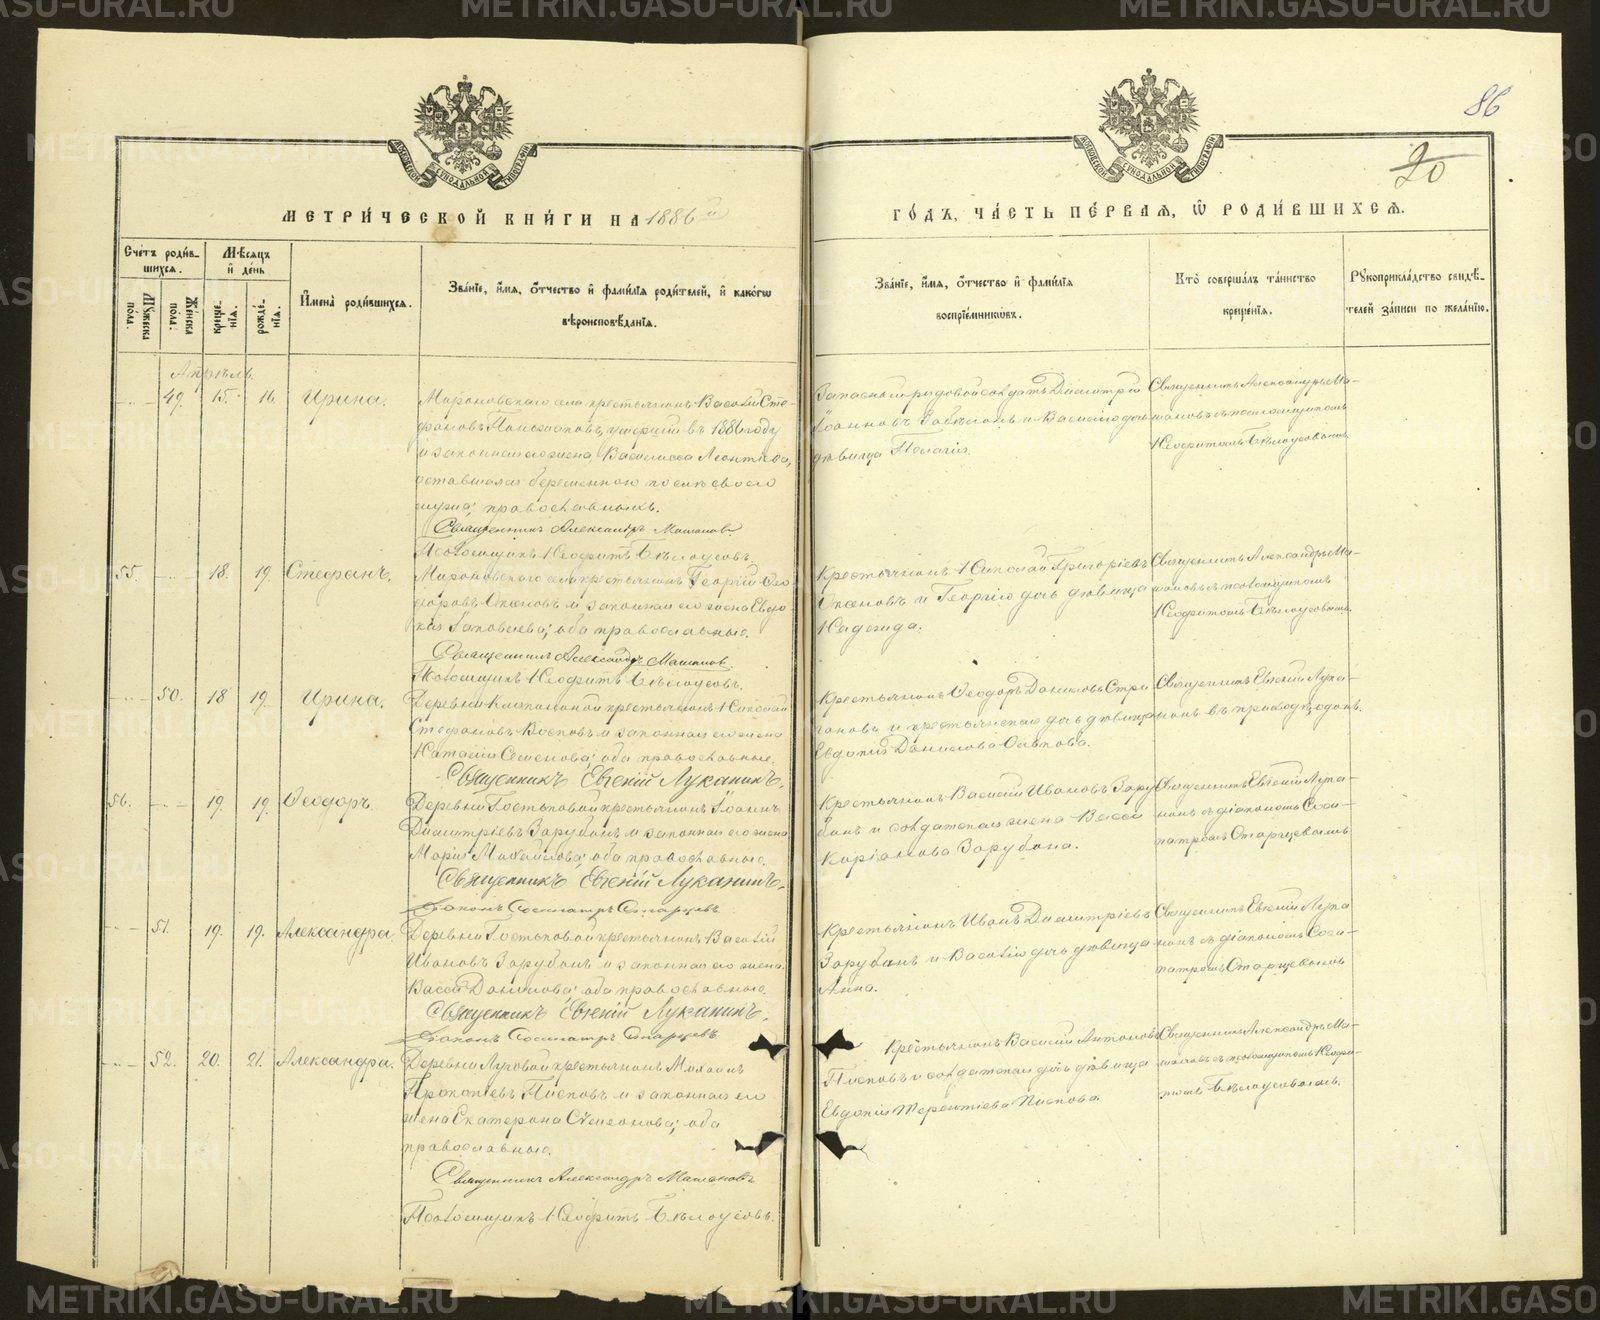 METRIKI.GASO-URAL.RU
86
20
МЕТРИ́ЧЕСКОЙ КНИ́ГИ НА 1886 й
ГО́ДЪ, ЧА́СТЬ ПЕ́РВАѦ, Ѡ҆ РОДИ́ВШИХСѦ.
МОСКОВСКОЙ СѴНОДАЛЬНОЙ ТИПОГРАФІИ
МОСКОВСКОЙ СѴНОДАЛЬНОЙ ТИПОГРАФІИ
Сче́тъ роди́вшихсѧ.
Мꙋ́жеска по́лꙋ.
Же́нска по́лꙋ.
Мѣ́сѧцъ и҆ де́нь
рожде́нїѧ.
креще́нїѧ.
И҆мена̀ роди́вшихсѧ.
Зва́нїе, и҆́мѧ, ѻ҆́тчество и҆ фами́лїѧ роди́телей, и҆ како́гѡ
вѣроисповѣ́данїѧ.
Зва́нїе, и҆́мѧ, ѻ҆́тчество и҆ фами́лїѧ
воспрїе́мникѡвъ.
Кто̀ соверша́лъ та́инство
креще́нїѧ.
Рꙋкоприкла́дство свидѣ́-
телей за́писи по жела́нїю.
Апрѣль
49. 15. 16. Ирина.
Мироновскаго села крестьянинъ Василій Сте-
фановъ умершій въ 1886 году
и законная его жена Василисса Леонтіева,
оставшаяся беременною послѣ своего
мужа; православныхъ.
Священникъ Александръ
Псаломщикъ Неофитъ Бѣлоусовъ.
Запасный рядовой солдатъ Димитрій
Іоанновъ и Василіе дочь
дѣвица Пелагія.
Священникъ Александръ
съ псаломщикомъ
Неофитомъ Бѣлоусовымъ
55. 18. 19. Стефанъ.
Мироновскаго села крестьянинъ Георгій Ѳео-
доровъ и законная его жена Евдо-
кія оба православные.
Священникъ Александръ
Псаломщикъ Неофитъ Бѣлоусовъ.
Крестьянинъ Николай Григоріевъ
и Георгіе дочь дѣвица
Надежда.
Священникъ Александръ
съ псаломщикомъ
Неофитомъ Бѣлоусовымъ.
50. 18 19. Ирина.
Деревни крестьянинъ Николай
Стефановъ и законная его жена
Наталія Семенова; оба православные.
Священникъ Евгеній Луканинъ.
Крестьянинъ Ѳеодоръ Даниловъ Стри-
гановъ и крестьянская дочь дѣвица
Евдокія Данилова
Священникъ Евгеній Лука-
нинъ въ приходѣ одинъ.
56. 19. 19. Ѳеодоръ.
Деревни Гостьковой крестьянинъ Іоаннъ
Димитріевъ Зарубинъ и законная его жена
Марія Михайлова; оба православные.
Священникъ Евгеній Луканинъ.
Діаконъ Сосипатръ Старцевъ
Крестьянинъ Василій Ивановъ Зару-
бинъ и солдатская жена Васса
Зарубина.
Священникъ Евгеній Лука-
нинъ съ діакономъ Соси-
патромъ Старцевымъ
51. 19. 19. Александра.
Деревни Гостьковой крестьянинъ Василій
Ивановъ Зарубинъ и законная его жена
Васса Данилова; оба православные.
Священникъ Евгеній Луканинъ.
Діаконъ Сосипатръ Старцевъ
Крестьянинъ Иванъ Димитріевъ
Зарубинъ и Василіе дочь дѣвица
Анна.
Священникъ Евгеній Лука
нинъ съ діакономъ Соси-
патромъ Старцевымъ
52. 20. 21. Александра.
Деревни Луговой крестьянинъ
Прокопіевъ и законная его
жена Екатерина Сѵмеонова; оба
православные.
Священникъ Александръ
Псаломщикъ Неофитъ Бѣлоусовъ.
Крестьянинъ Василій Антоновъ
и солдатская дочь дѣвица
Евдокія Терентіева
Священникъ Александръ
съ псаломщикомъ Неофи-
томъ Бѣлоусовымъ.